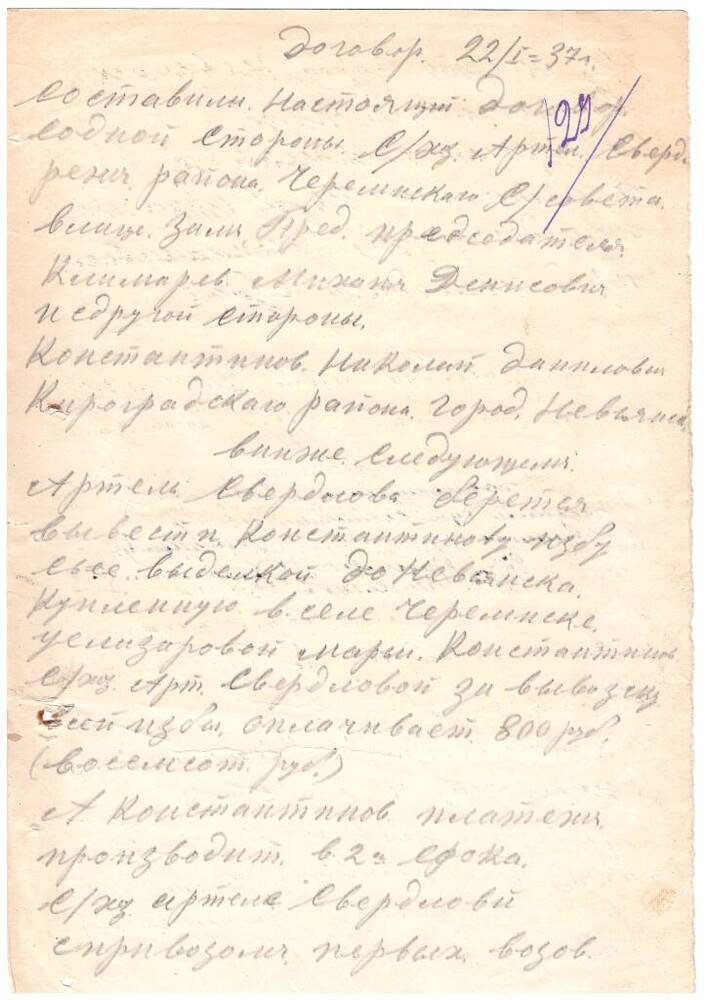 Договор. 22/I=37г.
129
Составили. Настоящий Договор.
Содной стороны. С/хз. Артел. Сверд
режич района. Черемискаго С/совета.
влице. Зам Пред. председателя
Климарев. Михаил Денисович
и сдругой стороны.
Константинов. Николай Данилович
Кироградскаго района. город. Невьянск.
вниже. Следующем.
Артель Свердлова берется
вывести. Константинову избу
сее выделкой до Невьянска.
Купленную в селе Черемиске.
уелизаровой Марьи. Константинов
С/хз. Арт. Свердловой за вывозку
сей избы. оплачивает 800 руб.
(восемсот. руб.)
А Константинов платежи
производит. в 2а срока.
С/хз артеле Свердловй
спривозом первых. возов.